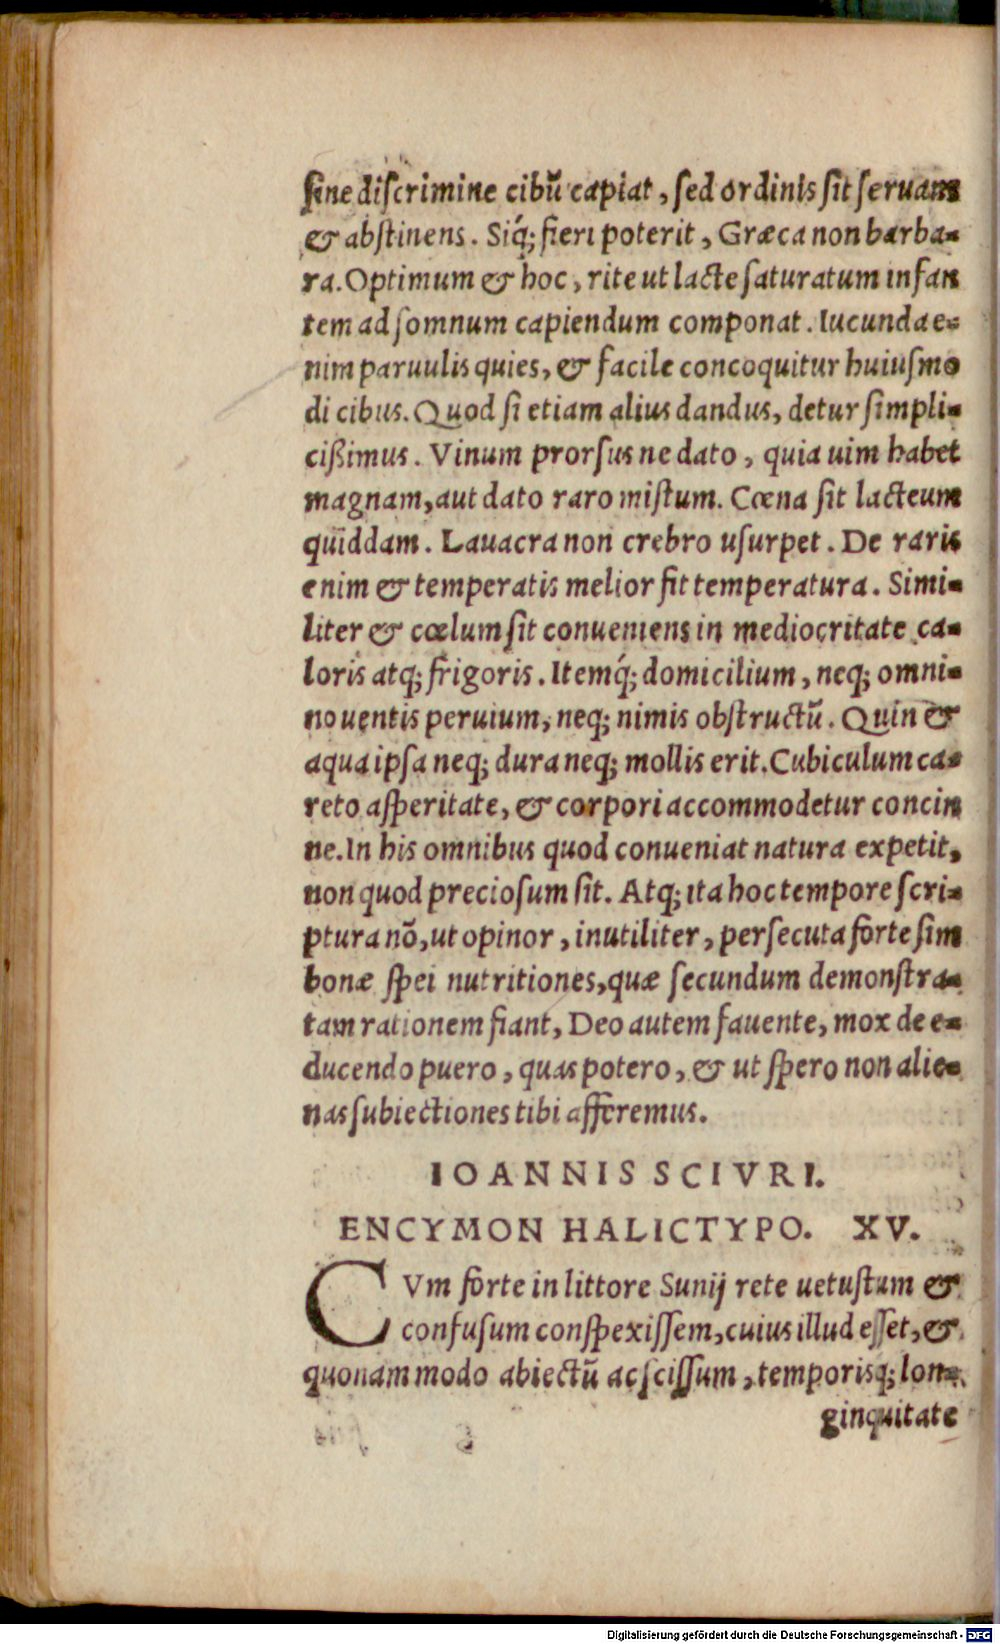 ſine diſcrimine cibũ capiat, ſed ordinis ſit ſeruans
& abſtinens. Siq́; fieri poterit, Græca non barba-
ra. Optimum & hoc, rite ut lacte ſaturatum infan
tem ad ſomnum capiendum componat. Iucunda e-
nim paruulis quies, & facile concoquitur huiuſmo
di cibus. Quod ſi etiam alius dandus, detur ſimpli-
cißimus. Vinum prorſus ne dato, quia uim habet
magnam, aut dato raro miſtum. Cœna ſit lacteum
quiddam. Lauacra non crebro uſurpet. De raris
enim & temperatis melior fit temperatura. Simi-
liter & cœlum ſit conueniens in mediocritate ca-
loris atq; frigoris. Itemq́; domicilium, neq; omni-
no uentis peruium, neq; nimis obſtructũ. Quin &
aqua ipſa neq; dura neq; mollis erit. Cubiculum ca-
reto aſperitate, & corpori accommodetur concin
ne. In his omnibus quod conueniat natura expetit,
non quod precioſum ſit. Atq; ita hoc tempore ſcri-
ptura nõ, ut opinor, inutiliter, perſecuta forte ſim
bonæ ſpei nutritiones, quæ ſecundum demonſtra-
tam rationem fiant, Deo autem fauente, mox de e-
ducendo puero, quas potero, & ut ſpero non alie-
nas ſubiectiones tibi afferemus.
IOANNIS SCIVRI.
ENCYMON HALICTYPO. XV.
CVm forte in littore Sunij rete uetuſtum &
confuſum conſpexiſſem, cuius illud eſſet, &
quonam modo abiectũ ac ſciſſum, temporisq́; lon-
ginquitate
Digitalisierung gefördert durch die Deutsche Forschungsgemeinschaft - DFG